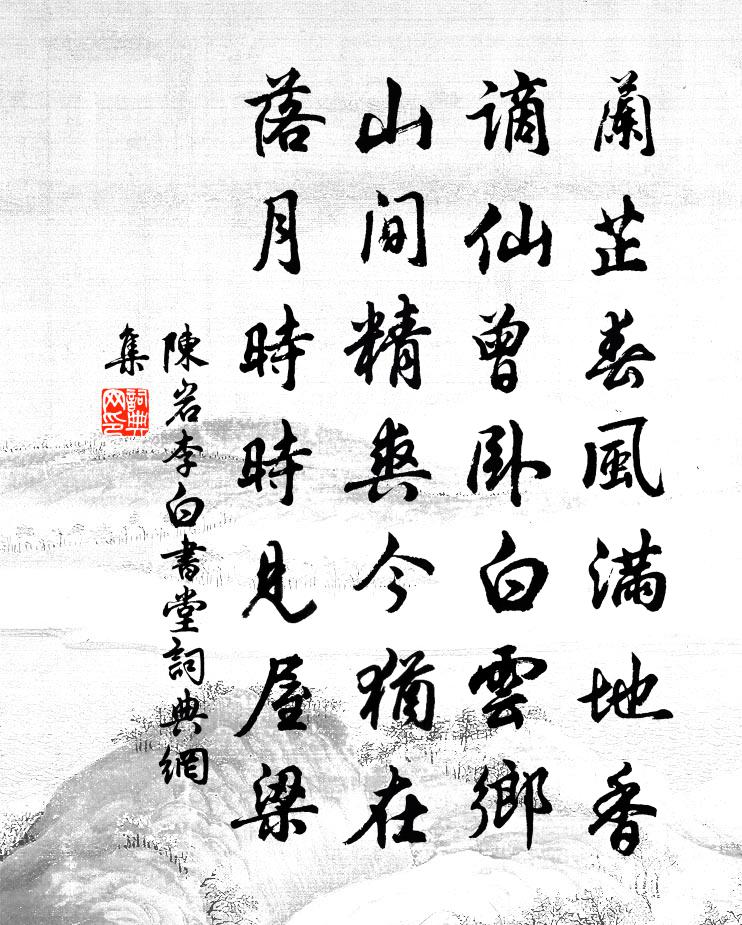 蘭芷春風滿地香
謫仙曾卧白雲鄉
山間精爽今猶在
落月時時見屋梁
陳岩李白書堂詞典網
集
詞典
网印